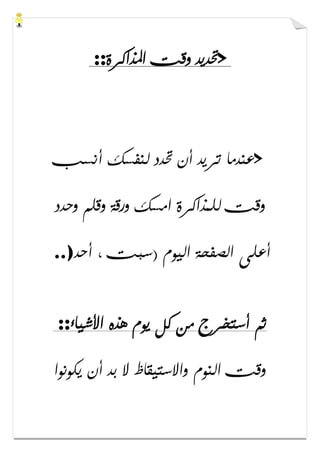 >تحديد وقت المذاكرة::
>عندما تريد أن تحدد لنفسك أنسب
وقت للمذاكرة امسك ورقة وقلم وحدد
أعلى الصفحة اليوم (سبت ، أحد)..
ثم أستخرج من كل يوم هذه الأشياء::
وقت النوم والاستيقاظ لا بد أن يكونوا